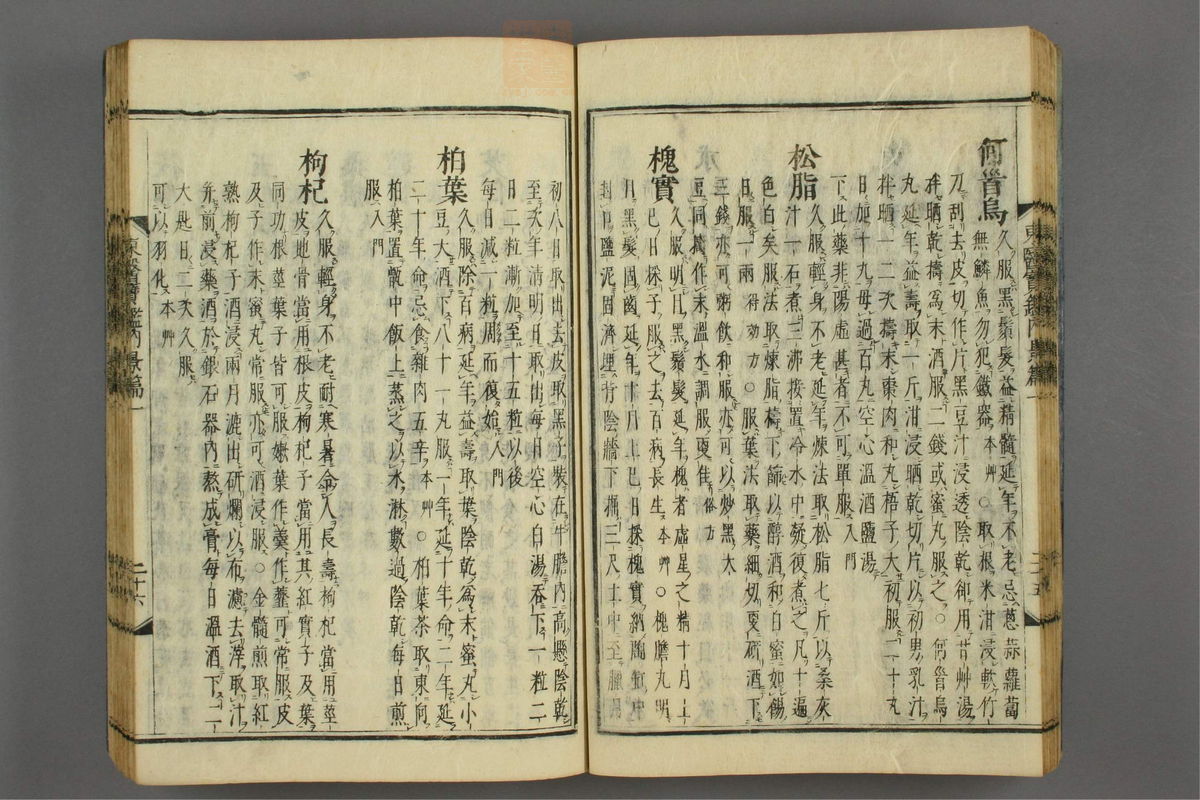 何首烏
久服黑鬚髮益精髓延年不老忌葱蒜蘿蔔
無鱗魚勿犯鐵器本艸○取根米泔浸軟竹
刀刮去皮切作片黑豆汁浸透陰乾却用甘艸湯
拌晒乾擣爲末酒服二錢或蜜丸服之○何首烏
丸延年益壽取一斤泔浸晒乾切片以初男乳汁
拌晒一二次擣末棗肉和丸梧子大初服二十丸
日加十丸毋過百丸空心溫酒鹽湯
下此藥非陽虛甚者不可單服入門
松脂
久服輕身不老延年煉法取松脂七斤以桑灰
汁一石煮三沸接置冷水中凝復煮之凡十遍
色白矣服法取煉脂擣下篩以醇酒和白蜜如餳
日服一兩得効方○服葉法取葉細切更硏酒下
三錢亦可粥飮和服亦可以炒黑大
豆同擣作末溫水調服更佳俗方
槐實
久服明目黑鬚髮延年槐者虛星之精十月上
巳日採子服之去百病長生本艸○槐膽丸明
目黑髮固齒延年十月上巳日採槐實納陶缸中
封以鹽泥固濟埋背陰牆下掘三尺土中至臘月
初八日取出去皮取黑子裝在牛膽內高懸陰乾
至次年淸明日取出每日空心白湯吞下一粒二
日二粒漸加至十五粒以後
每日減一粒周而復始入門
柏葉
久服除百病延年益壽取葉陰乾爲末蜜丸小
豆大酒下八十一丸服一年延十年命二年延
二十年命忌食雜肉五辛本艸○柏葉茶取東向
柏葉置甑中飯上蒸之以水淋數過陰乾每日煎
服入門
枸杞
久服輕身不老耐寒暑令人長壽枸杞當用莖
皮地骨當用根皮枸杞子當用其紅實子及葉
同功根莖葉子皆可服嫩葉作羹作虀可常服皮
及子作末蜜丸常服亦可酒浸服○金髓煎取紅
熟枸杞子酒浸兩月漉出硏爛以布濾去滓取汁
幷前浸藥酒於銀石器內熬成膏每日溫酒下二
大匙日二次久服
可以羽化本艸
東醫寶鑑內景篇一
二十六